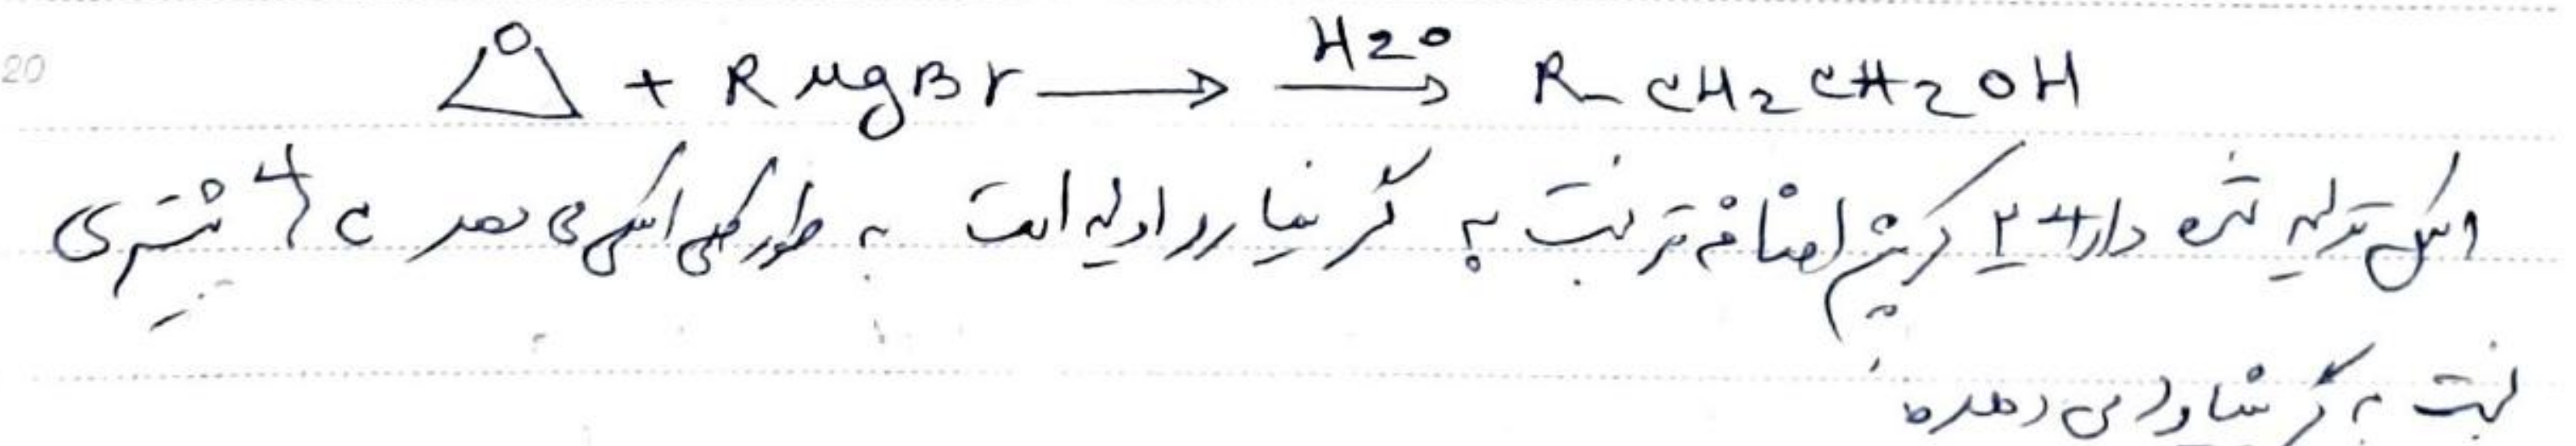 20
O + RMgBr → H2O → R-CH2CH2OH
الکل تولید شده دارای 2 کربن اضافه تر نسبت به گرینیارد اولیه است به طور کلی الکلی می دهد C بیشتری
نسبت به گرینیارد می دهد.